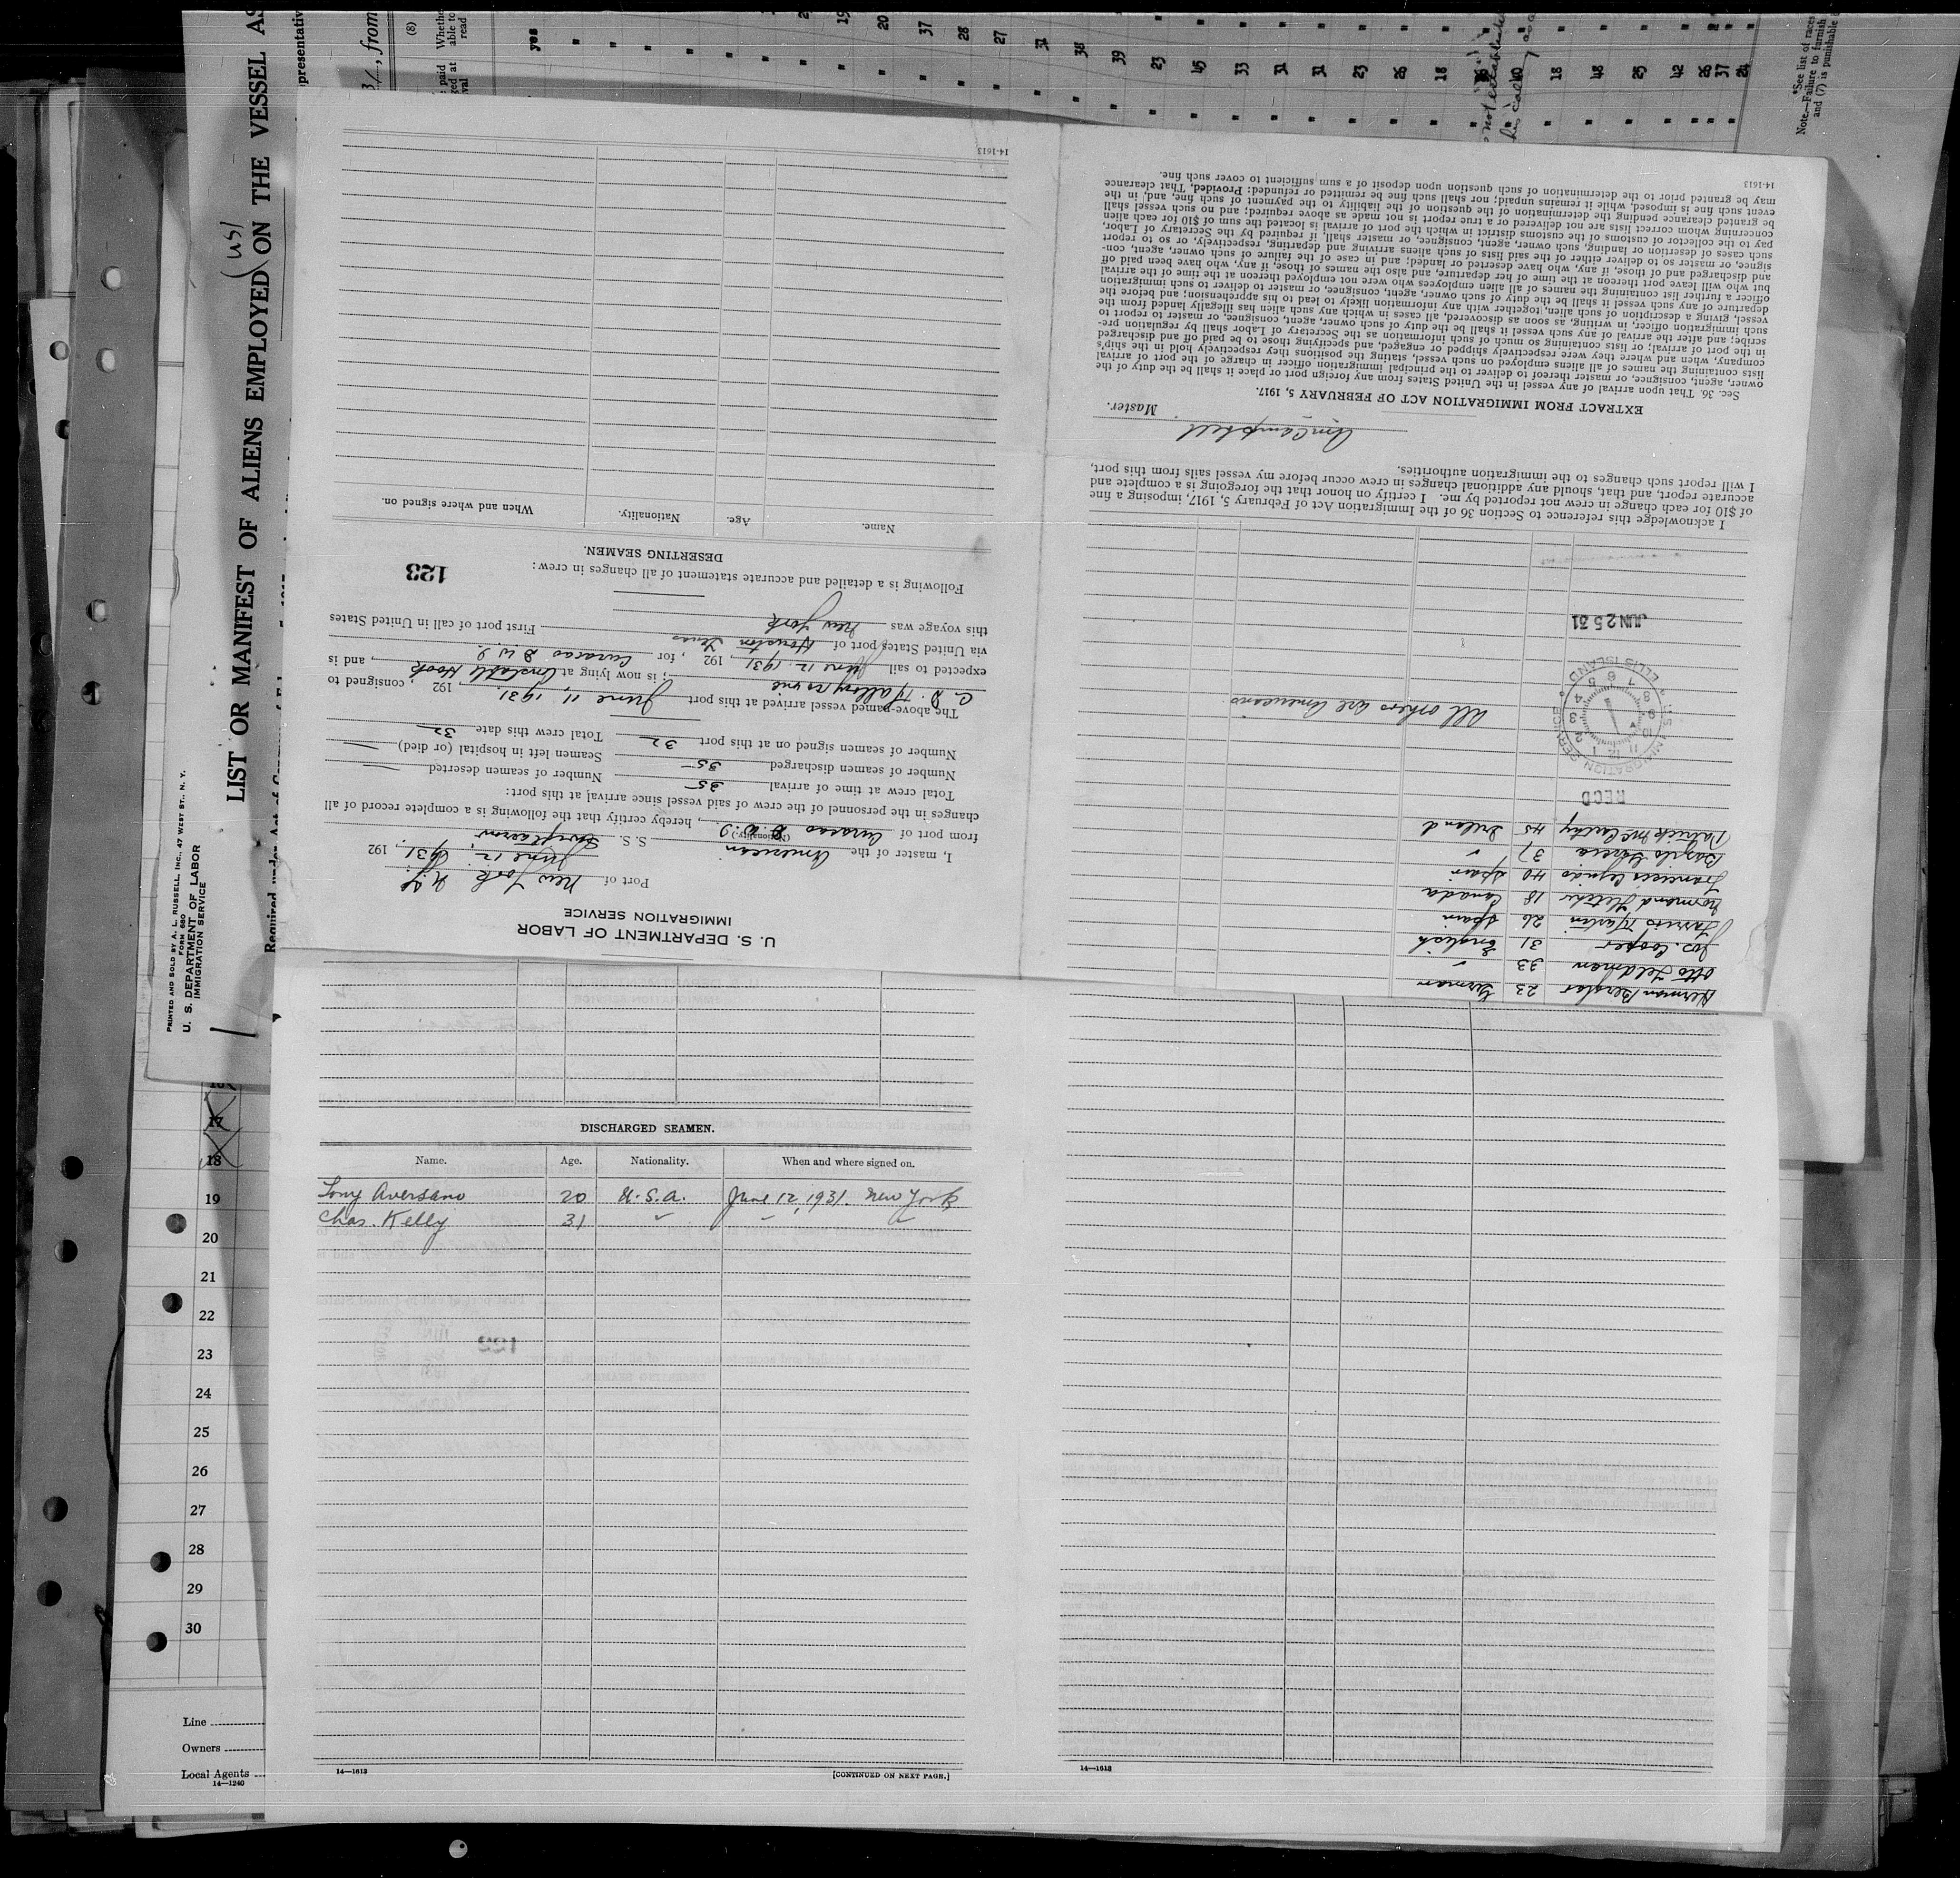 PRINTED AND SOLD BY A. L. RUSSELL, INC., 47 WEST ST., N. Y.
FORM 680
U. S. DEPARTMENT OF LABOR
IMMIGRATION SERVICE
LIST OR MANIFEST OF ALIENS EMPLOYED ON THE VESSEL AS
(us)
Required under Act of
presentativ
, from
(8)
Whethe
able to
read
yes
20
37
28
27
31
38
39
23
45
33
31
31
23
26
18
40
18
48
25
42
26
37
24
not established
*See list of races
Note.—Failure to furnish
and (7) is punishable
U. S. DEPARTMENT OF LABOR
IMMIGRATION SERVICE
Port of New York N.Y.
June 12, 1931, 192
I, master of the American S. S.
(Nationality)
from port of Curacao D.W.I., hereby certify that the following is a complete record of all
changes in the personnel of the crew of said vessel since arrival at this port:
Total crew at time of arrival 35 Number of seamen deserted —
Number of seamen discharged 35 Seamen left in hospital (or died) —
Number of seamen signed on at this port 32 Total crew this date 32
The above-named vessel arrived at this port June 11, 1931, 192 , consigned to
C. D. Mallory & Co. inc ; is now lying at Constable Hook, and is
expected to sail June 12, 1931, 192 , for Curacao D W I.
via United States port of Houston Texas First port of call in United States
this voyage was New York
Following is a detailed and accurate statement of all changes in crew:
123
DESERTING SEAMEN.
Name. Age. Nationality. When and where signed on.
14-1613
Herman Berglas 23 German
Otto Feldman 33 "
Jos. Cooper 31 English
Martin 26 Spain
Normand Fletcher 18 Canada
Francisco 40 Spain
Garcia 37 "
Patrick McCarthy 45 Ireland
REC'D
U. S. IMMIGRATION SERVICE
ELLIS ISLAND
12 1 2 3 4 5 6 7 8 9 10 11
JUN 25 31
All others are Americans
I acknowledge this reference to Section 36 of the Immigration Act of February 5, 1917, imposing a fine
of $10 for each change in crew not reported by me. I certify on honor that the foregoing is a complete and
accurate report, and that, should any additional changes in crew occur before my vessel sails from this port,
I will report such changes to the immigration authorities.
Campbell
Master.
EXTRACT FROM IMMIGRATION ACT OF FEBRUARY 5, 1917.
Sec. 36. That upon arrival of any vessel in the United States from any foreign port or place it shall be the duty of the
owner, agent, consignee, or master thereof to deliver to the principal immigration officer in charge of the port of arrival
lists containing the names of all aliens employed on such vessel, stating the positions they respectively hold in the ship's
company, when and where they were respectively shipped or engaged, and specifying those to be paid off and discharged
in the port of arrival; or lists containing so much of such information as the Secretary of Labor shall by regulation pre-
scribe; and after the arrival of any such vessel it shall be the duty of such owner, agent, consignee, or master to report to
such immigration officer, in writing, as soon as discovered, all cases in which any such alien has illegally landed from the
vessel, giving a description of such alien, together with any information likely to lead to his apprehension; and before the
departure of any such vessel it shall be the duty of such owner, agent, consignee, or master to deliver to such immigration
officer a further list containing the names of all alien employees who were not employed thereon at the time of the arrival
but who will leave port thereon at the time of her departure, and also the names of those, if any, who have been paid off
and discharged and of those, if any, who have deserted or landed; and in case of the failure of such owner, agent, con-
signee, or master so to deliver either of the said lists of such aliens arriving and departing, respectively, or so to report
such cases of desertion or landing, such owner, agent, consignee, or master shall, if required by the Secretary of Labor,
pay to the collector of customs of the customs district in which the port of arrival is located the sum of $10 for each alien
concerning whom correct lists are not delivered or a true report is not made as above required; and no such vessel shall
be granted clearance pending the determination of the question of the liability to the payment of such fine, and, in the
event such fine is imposed, while it remains unpaid; nor shall such fine be remitted or refunded: Provided, That clearance
may be granted prior to the determination of such question upon deposit of a sum sufficient to cover such fine.
14-1613
DISCHARGED SEAMEN.
Name. Age. Nationality. When and where signed on.
Tony Aversano 20 U.S.A. June 12, 1931. New York
Chas. Kelly 31 " " "
14—1613
[CONTINUED ON NEXT PAGE.]
14—1613
17
18
19
20
21
22
23
24
25
26
27
28
29
30
Line
Owners
Local Agents
14—1240